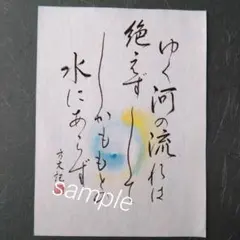 ゆく河の流れは
絶えずして
しかももとの
水にあらず
方丈記
sample